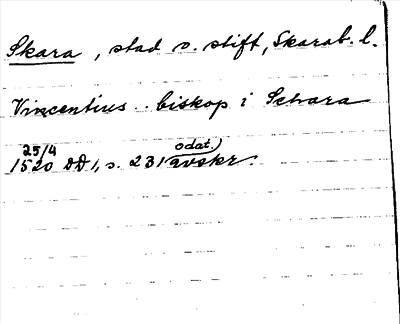 Skara, stad o. stift, Skarab. l.
Vincentius biskop i Schara
25/4 odat.)
1520 DD 1, s. 231 avskr.